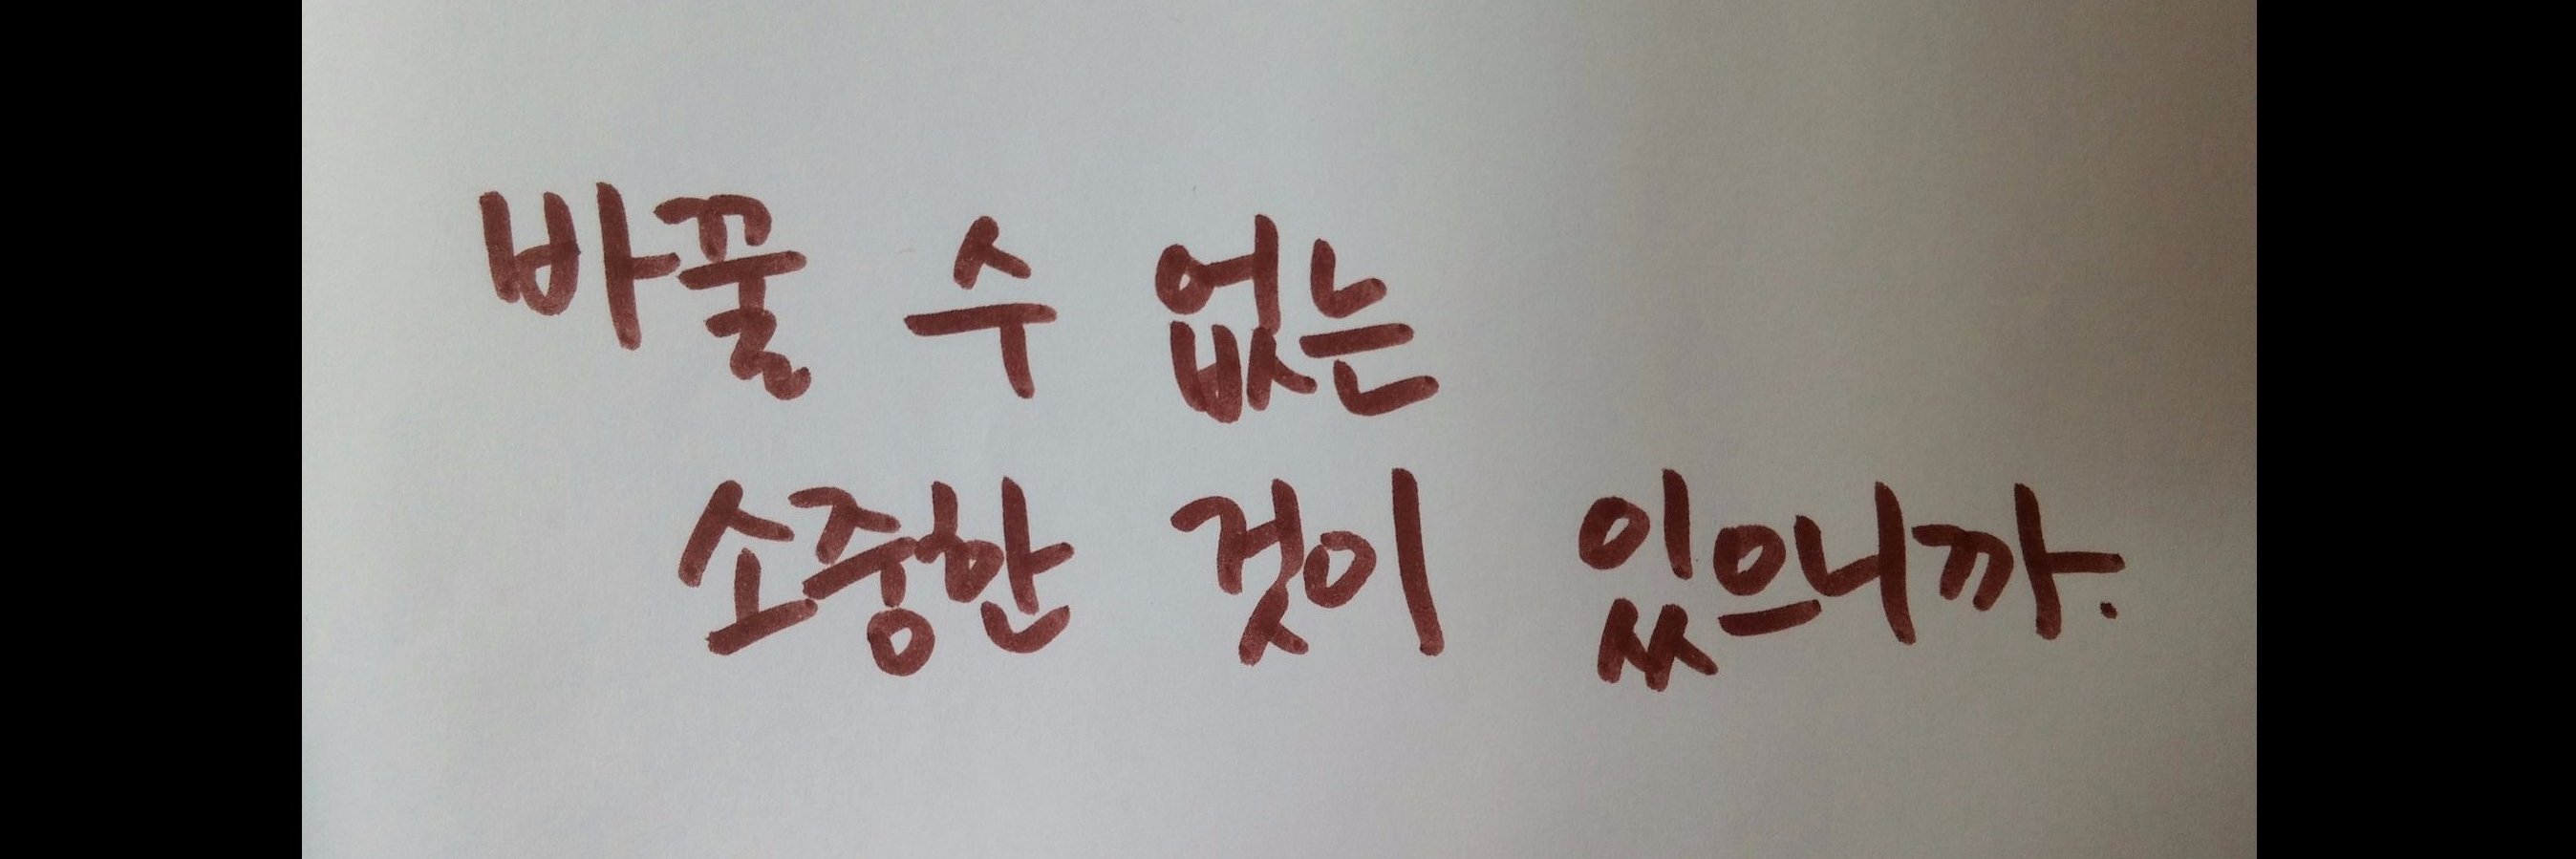 바꿀 수 없는
소중한 것이 있으니까.